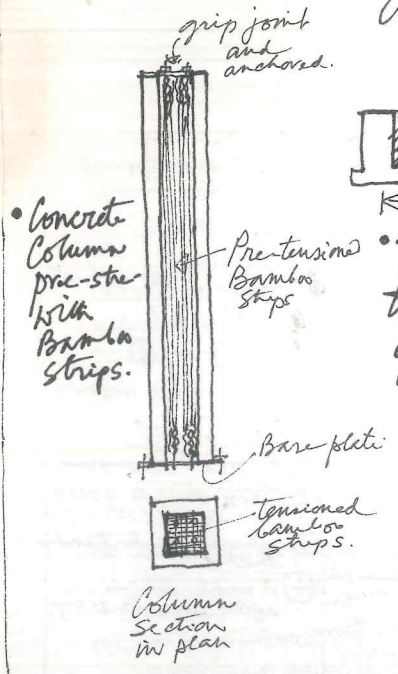 grip joint
and
anchored.
• Concrete
Column
pre-stre-
with
Bamboo
strips.
Pre-tensioned
Bamboo
Strips
Base plate
tensioned
bamboo
strips.
Column
Section
in plan